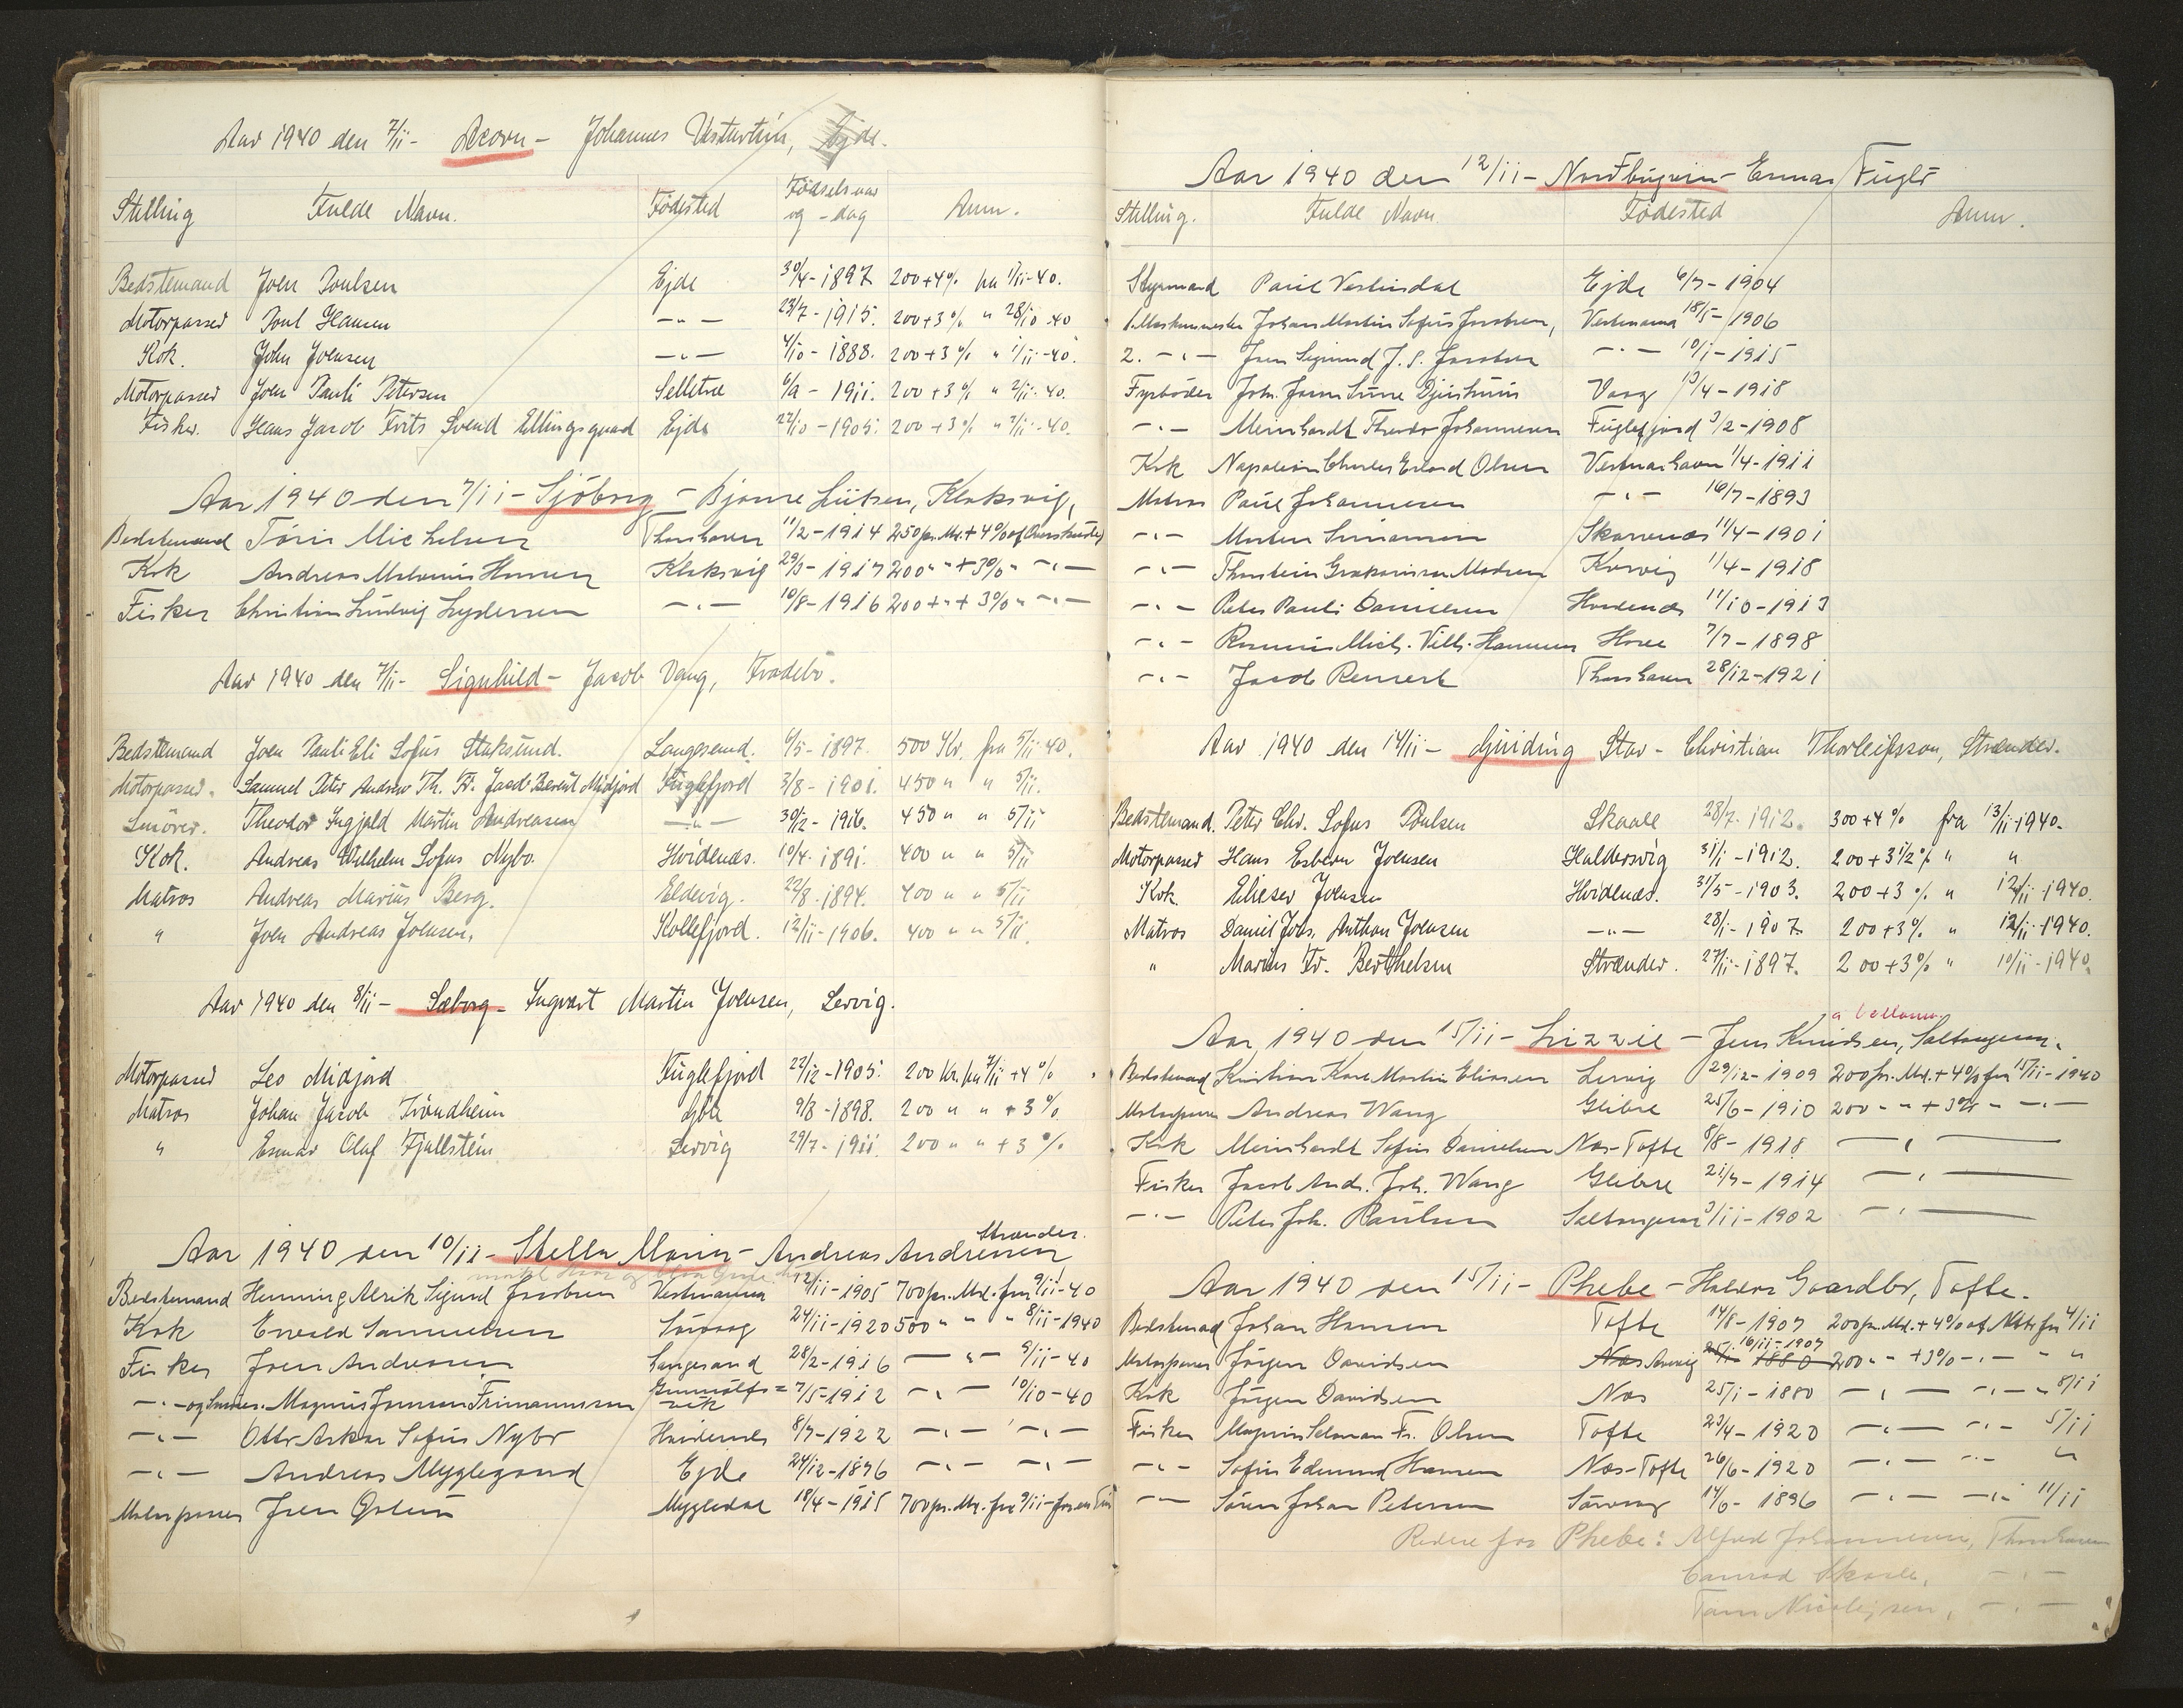 Aar 1940 den 7/11 - Acorn - Johannes Vesturtún, Ejde.
Stilling Fulde Navn. Fødested Fødselsaar og -dag Anm.
Bedstemand Joen Poulsen Ejde 30/4-1897 200+4% fra 1/11-40.
Motorpasser Poul Hansen -"- 23/7-1915. 200+3% " 28/10 40
Kok. John Joensen -"- 4/10-1888. 200+3% " 1/11-40.
Motorpasser Joen Pauli Petersen Selletræ 6/9-1911. 200+3% " 2/11-40.
Fisker. Hans Jacob Frits Svend Ellingsgaard Ejde 27/10-1905. 200+3% " 2/11-40.
Aar 1940 den 7/11 - Sjóborg - Bjarne Klaksvig,
Bedstemand Michelsen Thorshavn 11/2-1914 250 pr. Md. + 4% af
Kok Andreas Hansen Klaksvig 29/3-1917 200 " " + 3% " -"-
Fisker Christian Ludvig Lydersen -"- 10/8-1916 200 + " + 3% " -"-
Aar 1940 den 7/11 - Signhild - Jacob Vang, Fradebø.
Bedstemand Joen Pauli Eli Sofus Staksund. Langesand. 6/5-1897. 500 Kr. fra 5/11 40.
Motorpasser. Samuel Peter Andrew Th. Fr. Jacob Berent Midjord Fuglefjord 3/8-1901. 450 " " 5/11.
Smører. Theodor Ingjald Martin Andreasen -"- 30/12-1916. 450 " " 5/11
Kok. Andreas Wilhelm Sofus Nybo. Hvidenæs. 10/4-1891. 400 " " 5/11
Matros Andreas Marius Berg. Eldevig. 22/8-1894. 400 " " 5/11
" Joen Andreas Joensen, Kollefjord. 12/11-1906. 400 " " 5/11.
Aar 1940 den 8/11 - Sæborg - Ingvart Martin Joensen, Lervig.
Motorpasser Leo Midjord Fuglefjord 22/12-1905. 200 Kr. fra 7/11 +4%
Matros Johan Jacob Tróndheim Gøte 9/8-1898. 200 " " +3%
" Enmar Olaf Fjallstein Lervig 29/7-1911. 200 " " +3%
Strænder.
Aar 1940 den 10/11 - Stella Maris - Andreas Andreasen
Bedstemand Henning Alrik Sigurd Jacobsen Vestmanna 12/11-1905 700 pr. Md. fra 9/11-40
Kok Ewald Samuelsen Sørvaag 24/11-1920 500 " " " 8/11-1940
Fisker Joen Andreasen Langesand 28/2-1916 -"- 9/11-40
-"- og Magnus Frimannsson 7/5-1912 -"- 10/10-40
-"- Otto Askar Sofus Nybo Hvidenæs 8/7-1922 -"- -"-
-"- Andreas Mygglegaard Ejde 24/12-1896 -"- -"-
Motorpasser Joen Myggledal 18/4-1915 700 pr. Md. fra 9/11-
Aar 1940 den 12/11 - Nordbugvin - Enmar Fuglø
Stilling. Fulde Navn Fødested Anm.
Styrmand Paul Vestursdal Ejde 6/7-1904
1. Maskinmester Johan Martin Sofus Jacobsen, Vestmanna 18/5-1906
2. -"- Joen Sigmund J. S. Jacobsen -"- 10/1-1915
Fyrbøder Joh. Vaag 13/4-1918
-"- Meinhardt Theodor Johannesen Fuglefjord 3/2-1908
Kok Napoleon Charles Olsen Vestmanhavn 1/4-1911
Matros Paul Johannesen -"- 16/7-1893
-"- Morten Simonsen Skorrenæs 11/4-1901
-"- Thorstein Madsen Korvig 1/4-1918
-"- Peter Pauli Danielsen Hvidenæs 11/10-1913
-"- Mich. Vilh. Hansen 7/7-1898
-"- Jacob Reinert Thorshavn 28/12-1921
Aar 1940 den 14/11 - Guiding Star - Christian Thorleifsson, Strænder.
Bedstemand. Peter Chr. Sofus Poulsen Skaale 28/7-1912. 300+4% fra 13/11-1940.
Motorpasser Hans Esbern Joensen Haldersvig 31/1-1912. 200+3 1/2% " "
Kok Elieser Joensen Hvidenæs. 31/5-1903. 200+3% " 12/11-1940.
Matros Daniel Johs. Anthon Joensen -"- 28/1-1907. 200+3% " 12/11-1940.
" Marius Fr. Berthelsen Strænder. 27/11-1897. 200+3% " 10/11-1940.
Aar 1940 den 15/11 - Lizzie - Jens Knudsen, Saltangaraa.
Bedstemand Kristian Karl Martin Eliasen Lervig 29/12-1909 200 pr. Md. + 4% fra 15/11-1940
Motorpasser Andreas Wang Glibre 25/6-1910 200 " " + 3% " -"-
Kok Meinhardt Sofus Danielsen Næs-Tofte 8/8-1918 -"-
Fisker Jacob And. Joh. Wang Glibre 21/7-1914 -"-
-"- Peter Joh. Paulsen Saltangaraa 3/11-1902 -"-
Aar 1940 den 15/11 - Phebe - Haldor Gaardbo, Tofte.
Bedstemand Johan Hansen Tofte 14/8-1907 200 pr. Md. + 4% af Netto fra 4/11
16/11-1907
Motorpasser Jørgen Davidsen Næs 25/1-1880 200 " " + 3% -"- " "
Kok Jørgen Davidsen Næs 25/1-1880 -"- -"- 8/11
Fisker Magnus Fr. Olsen Tofte 23/4-1920 -"- -"- 5/11
-"- Sofus Edmund Hansen Næs-Tofte 26/6-1920 -"- -"- "
-"- Søren Johan Petersen Sørvaag 14/6-1896 -"- -"- 11/11
Redere for Phebe: Alfred Johannesen, Thorshavn
Conrad Skaale, -"-
Nicolajsen, -"-